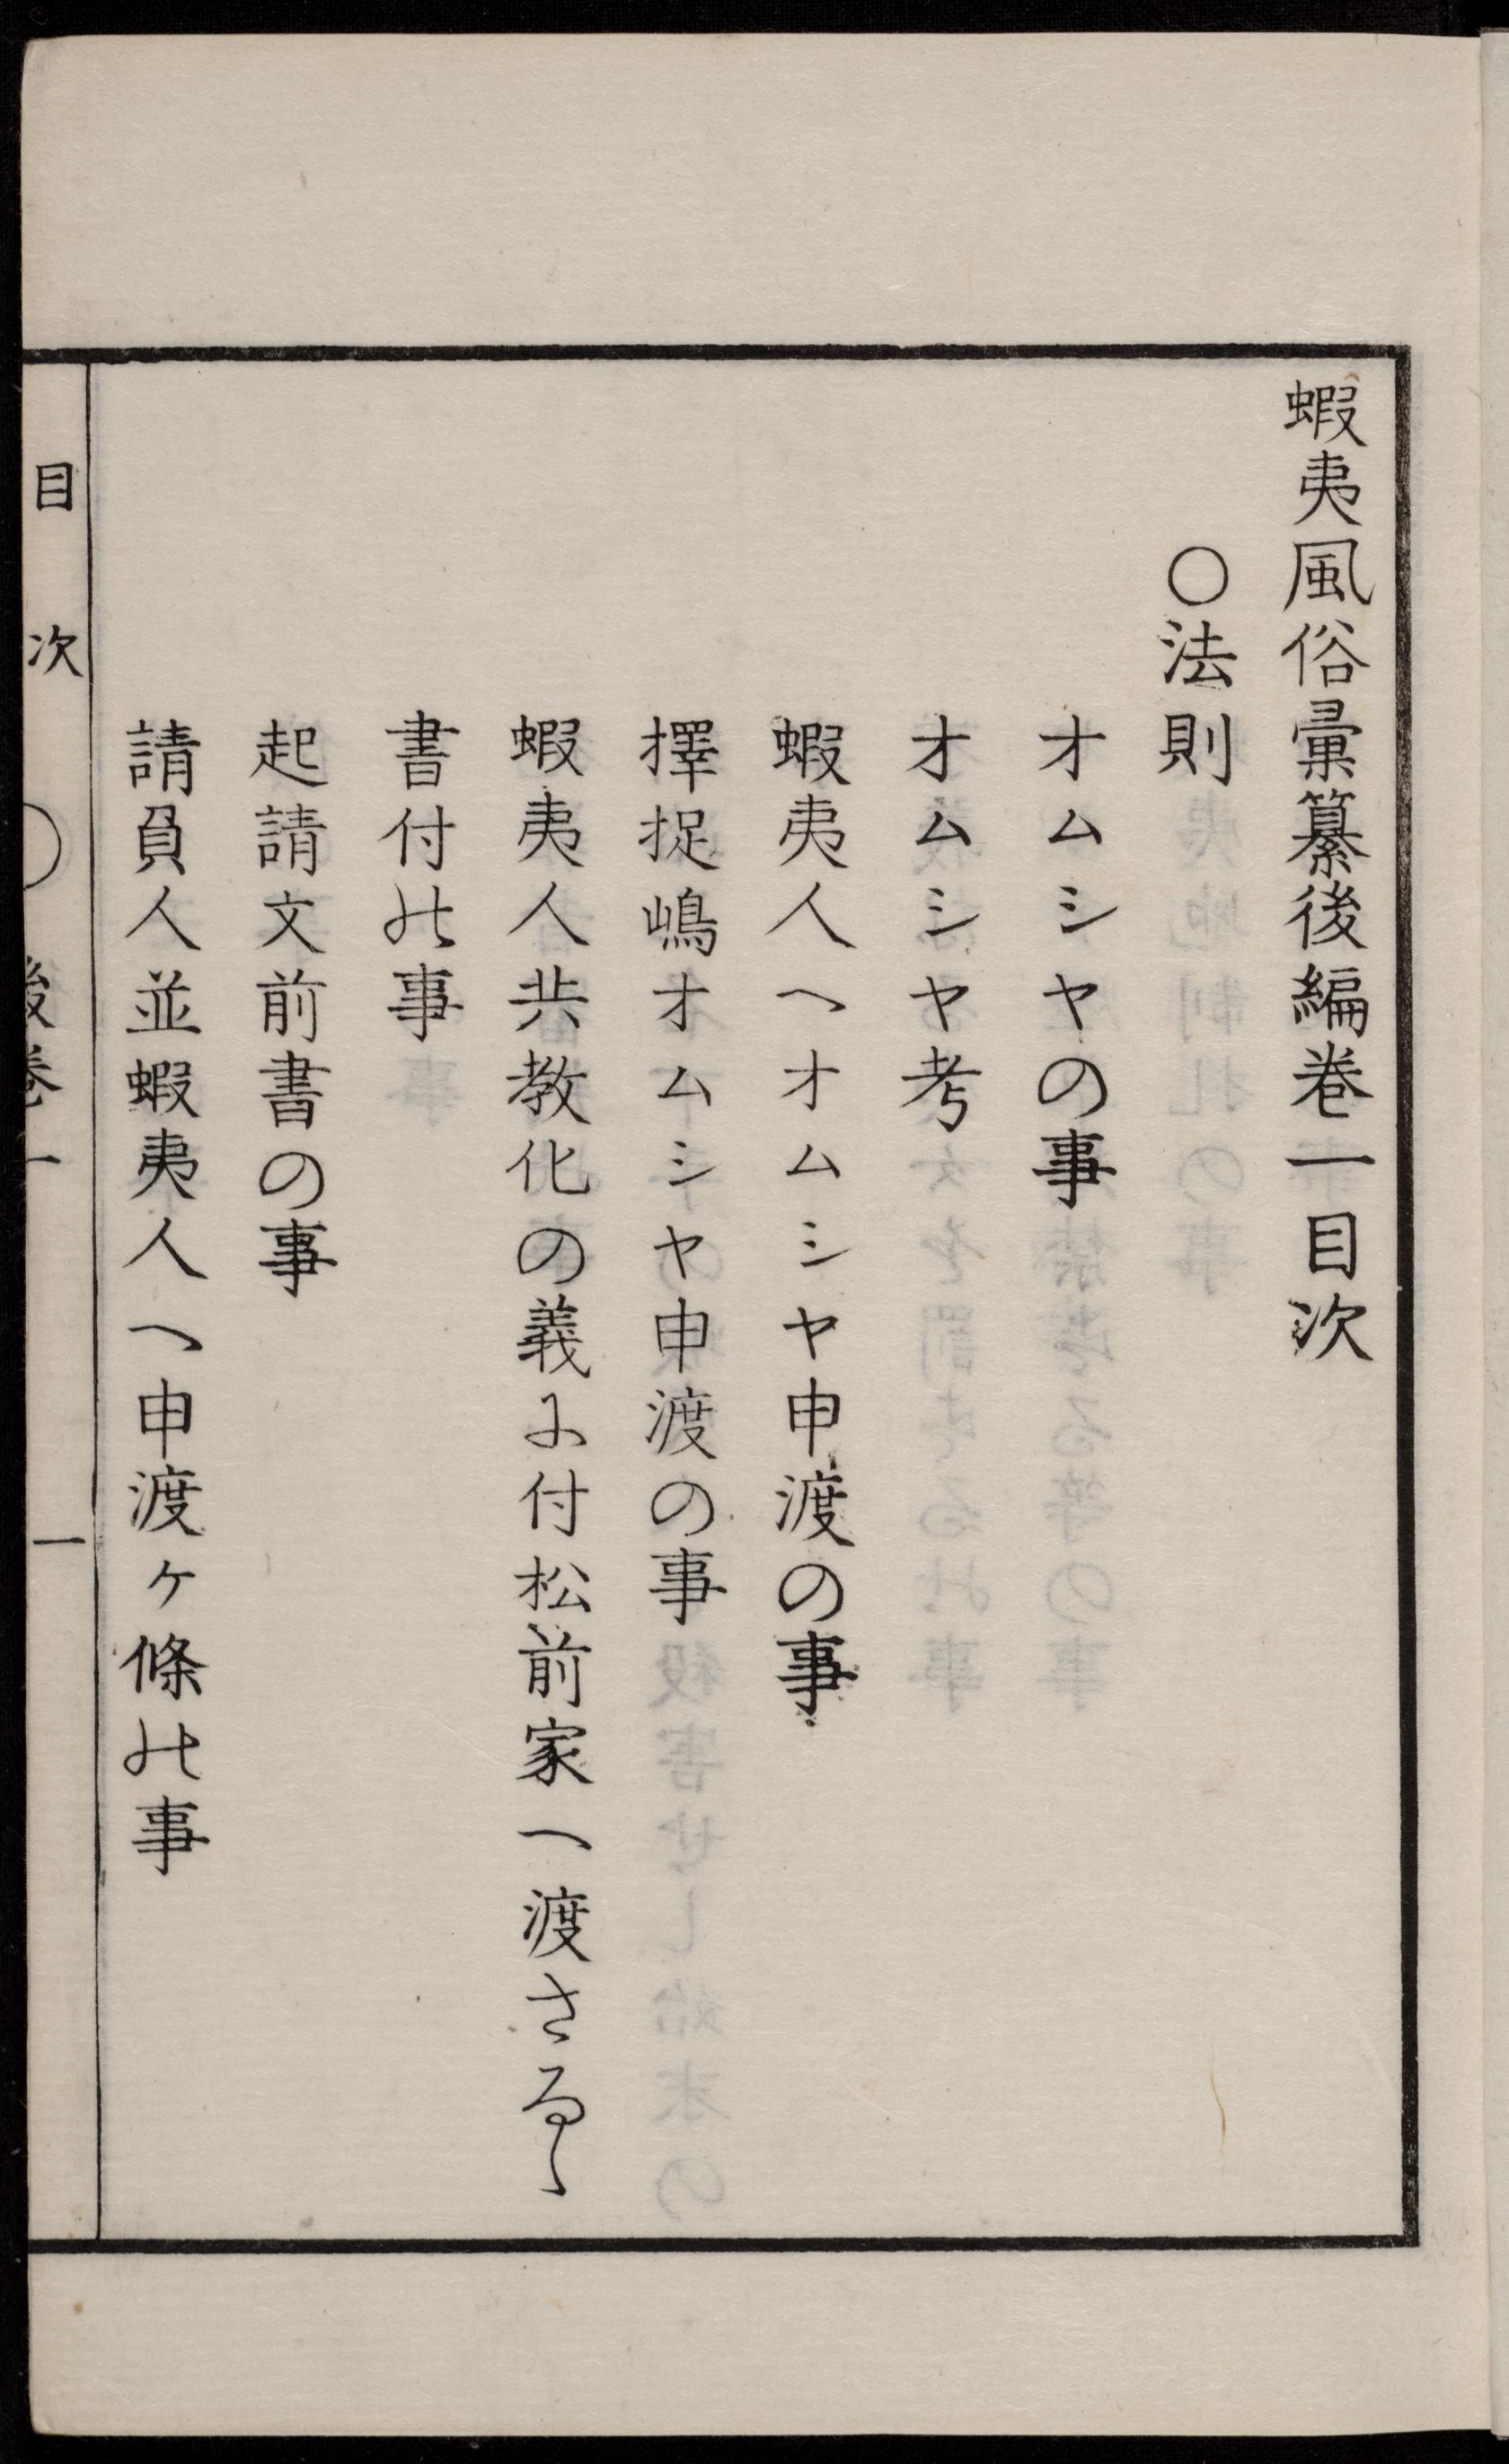 蝦夷風俗彙纂後編巻一目次
〇法則
オムシヤの事
オムシヤ考
蝦夷人へオムシヤ申渡の事
擇捉嶋オムシヤ申渡の事
蝦夷人共教化の義に付松前家へ渡さるゝ
書付の事
起請文前書の事
請負人並蝦夷人へ申渡ヶ條の事
目次 〇 後巻一 一